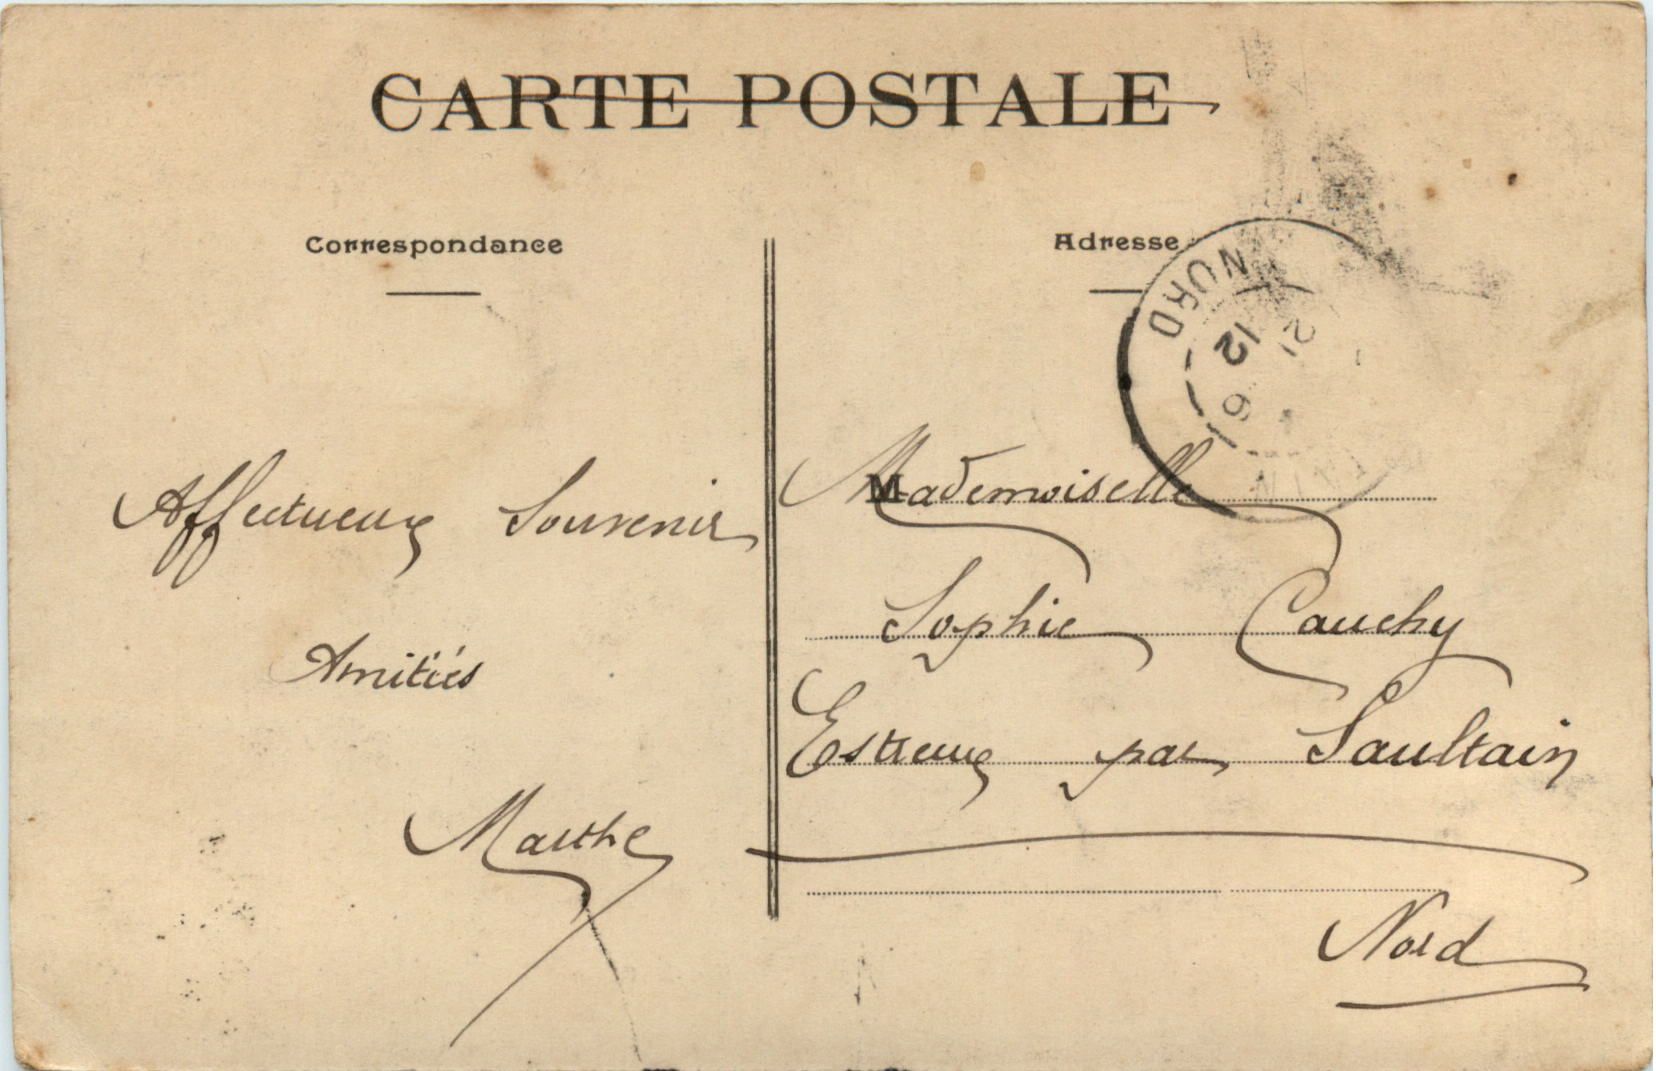 CARTE POSTALE
Correspondance
Adresse
NORD
21
12
Affectueux Souvenir
Amitiés
Marthe
Mademoiselle
Sophie Cauchy
Estreux par Saultain
Nord